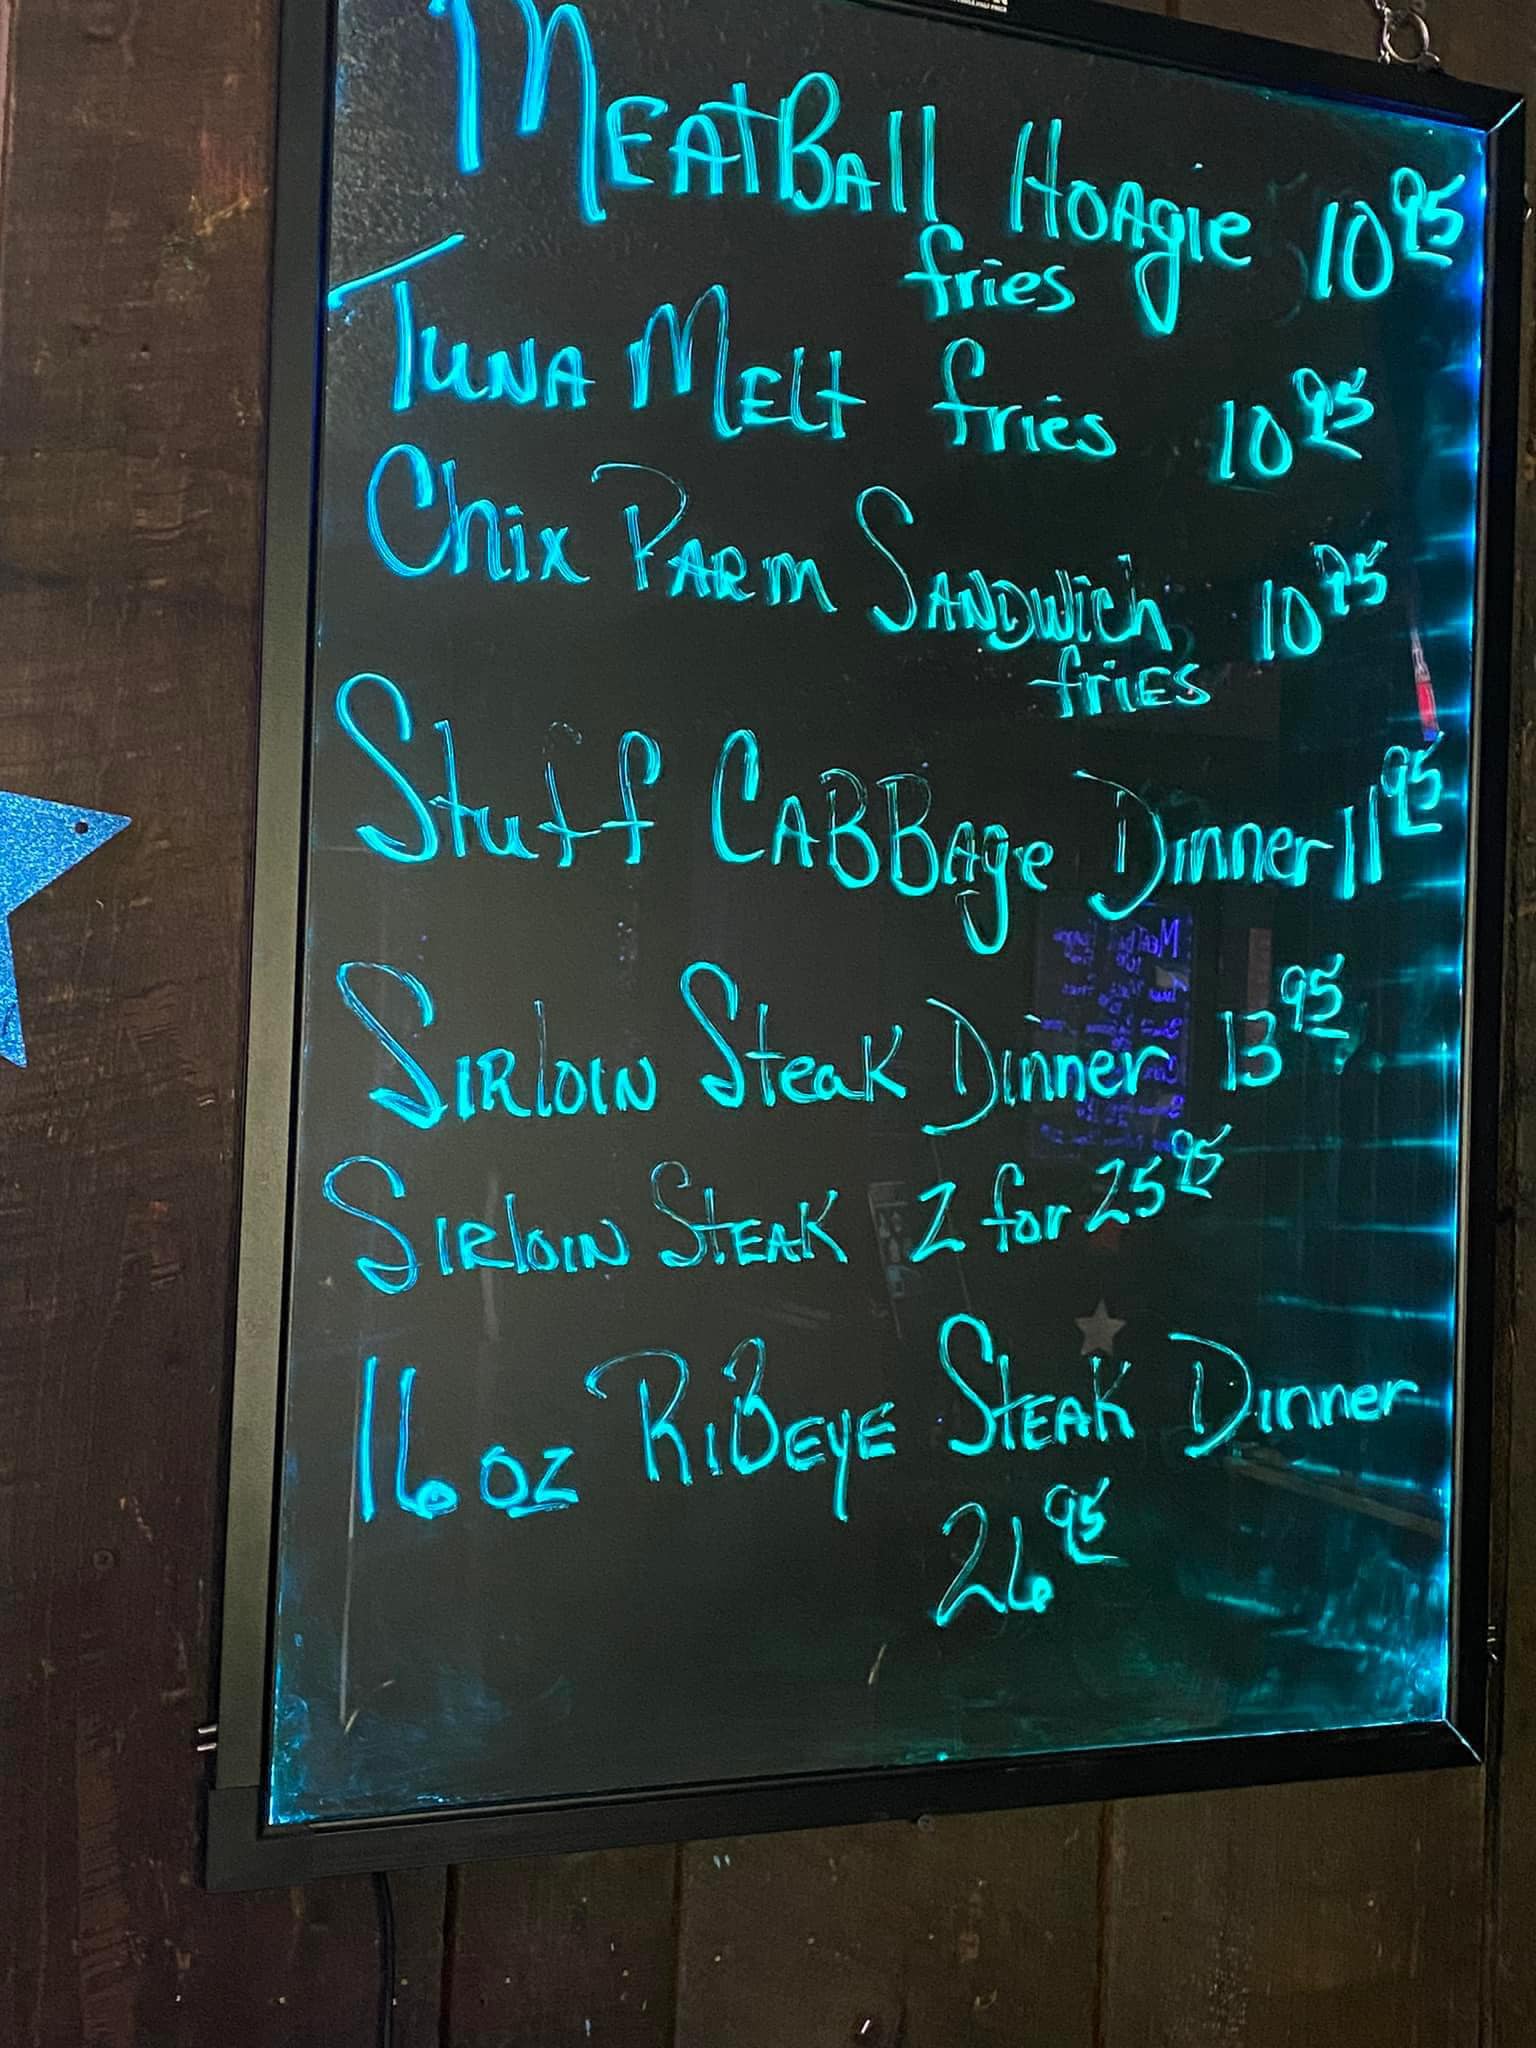 MEATBAll HOAgIE 10 95
fries
TUNA MElt fries 10 95
Chix PARM SANDWich 10 95
friES
Stuff CABBAge Dinner 11 95
SIRlOIN SteaK Dinner 13 95
SIRlOIN STEAK 2 for 25 95
16 oz RIBEYE STEAK Dinner
26 95